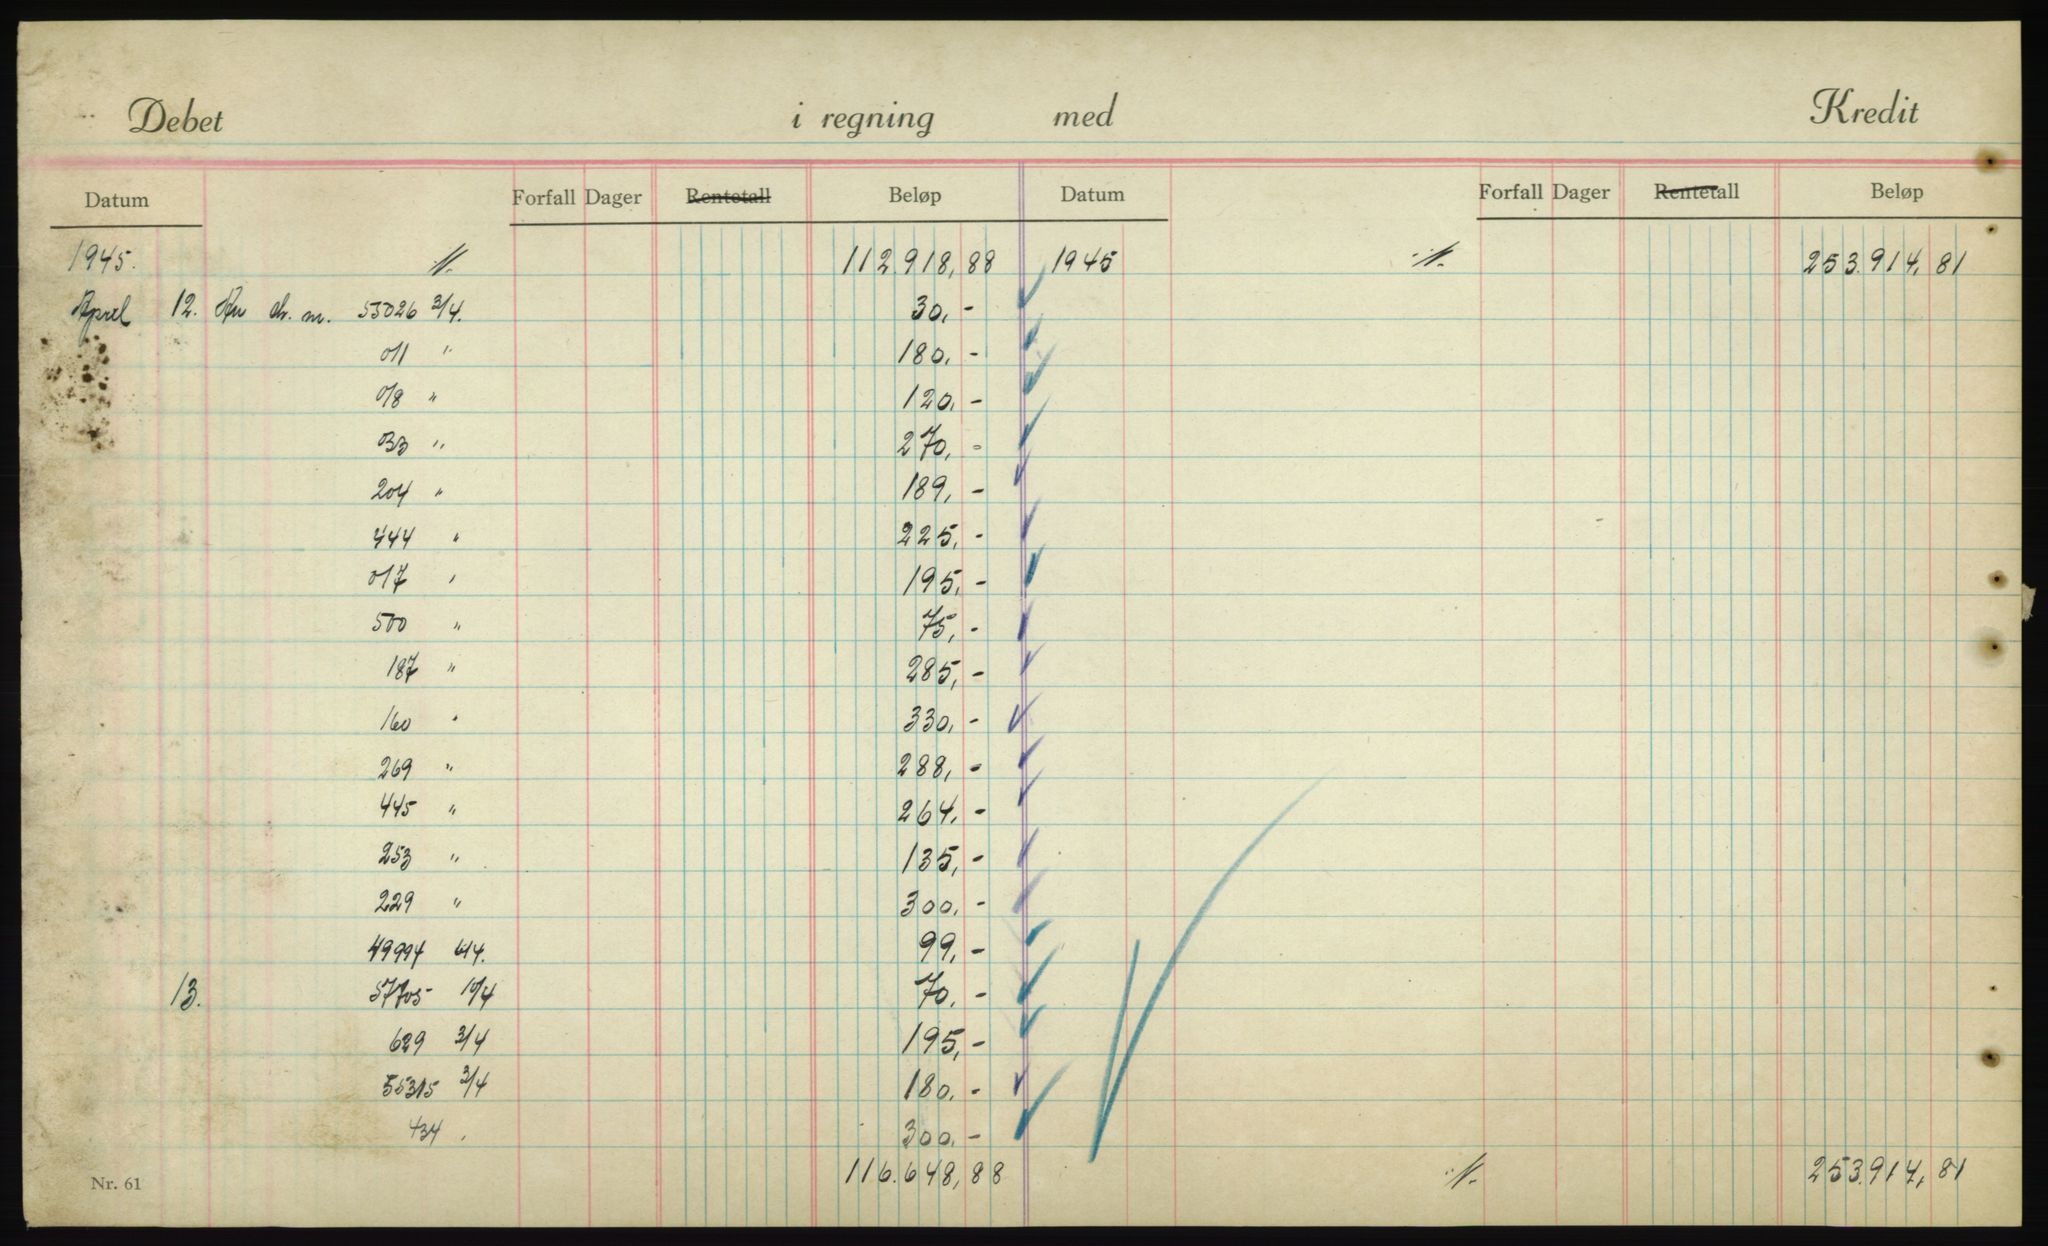 Debet i regning med Kredit
Datum Forfall Dager Rentetall Beløp Datum Forfall Dager Rentetall Beløp
1945. 112.918,88 1945 253.914,81
April 12. ch. nr. 53026 3/4. 30,-
011 " 180,-
018 " 120,-
033 " 270,-
204 " 189,-
444 " 225,-
017 " 195,-
500 " 75,-
187 " 285,-
160 " 330,-
269 " 288,-
445 " 264,-
253 " 135,-
229 " 300,-
49994 6/4. 99,-
13. 57705 10/4 70,-
629 3/4 195,-
55315 3/4 180,-
434 300,-
Nr. 61 116.648,88 253.914,81